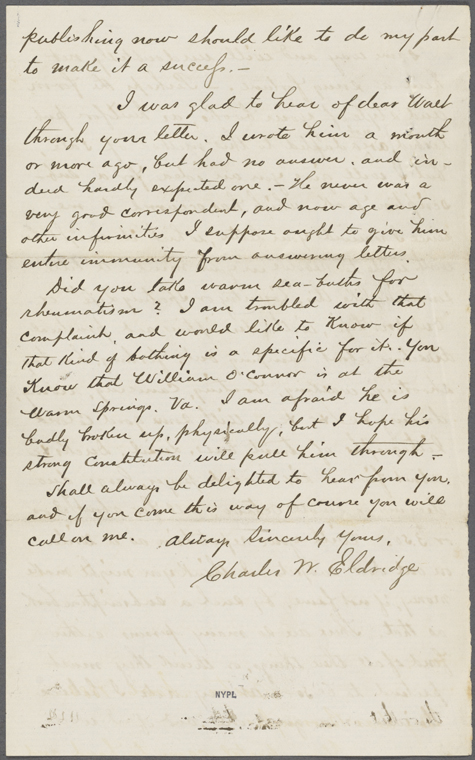 publishing now should like to do my part
to make it a success.—
I was glad to hear of dear Walt
through your letter. I wrote him a month
or more ago, but had no answer, and in-
deed hardly expected one.— He never was a
very good correspondent, and now age and
other infirmities I suppose ought to give him
entire immunity from answering letters.
Did you take warm sea-baths for
rheumatism? I am troubled with that
complaint, and would like to know if
that kind of bathing is a specific for it. You
know that William O'Connor is at the
Warm Springs, Va. I am afraid he is
badly broken up, physically, but I hope his
strong constitution will pull him through—
Shall always be delighted to hear from you,
and if you come this way of course you will
call on me. Always Sincerely Yours,
Charles W. Eldridge
NYPL